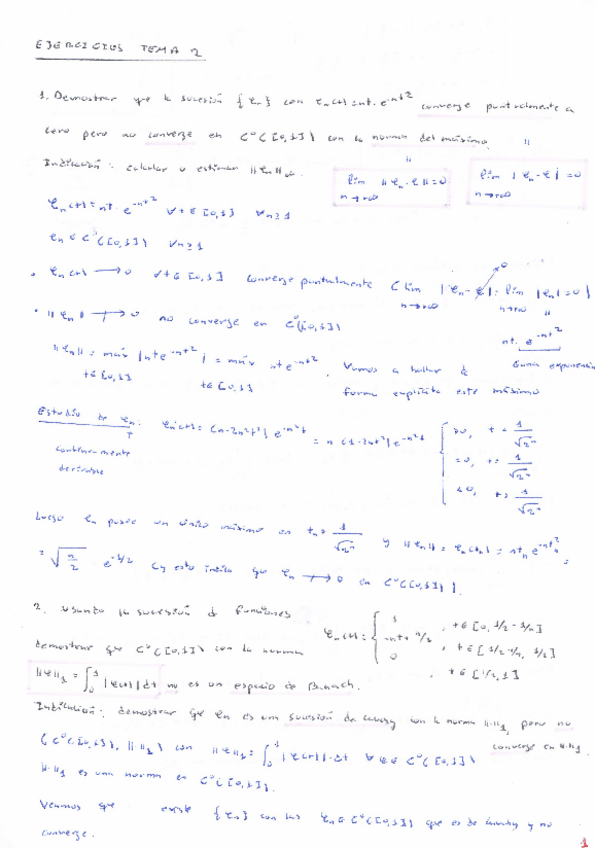 EJERCICIOS TEMA 2
1. Demostrar que la sucesión {φn} con φn(t)=nt·e^-nt² converge puntualmente a
cero pero no converge en C⁰([0,1]) con la norma del máximo.
Indicación: calcular o estimar ||φn||∞.
lim ||φn-φ||=0
n→+∞
lim |φn-φ|=0
n→+∞
φn(t)=nt·e^-nt² ∀t∈[0,1] ∀n≥1
φn∈C⁰([0,1]) ∀n≥1
• φn(t)→0 ∀t∈[0,1] converge puntualmente (lim |φn-φ|=lim |φn|=0)
n→+∞ n→+∞
nt·e^-nt²
• ||φn||↛0 no converge en C⁰([0,1])
Gana exponencial
||φn||=máx |nte^-nt²|=máx nte^-nt². Vamos a hallar de
t∈[0,1] t∈[0,1] forma explícita este máximo
Estudio de φn: φn'(t)=(n-2n²t²)e^-n²t=n(1-2nt²)e^-n²t
>0, t<1/√2n
=0, t=1/√2n
<0, t>1/√2n
continuamente
derivable
Luego φn posee un único máximo en tn=1/√2n y ||φn||=φn(tn)=ntne^-nt²n=
=√n/2 e^-1/2 (y esto indica que φn↛0 en C⁰([0,1])).
2. Usando la sucesión de funciones
φn(t)=
1, t∈[0,1/2-1/n]
-nt+n/2, t∈[1/2-1/n,1/2]
0, t∈[1/2,1]
demostrar que C⁰([0,1]) con la norma
||φ||₁=∫₀¹|φ(t)|dt no es un espacio de Banach.
Indicación: demostrar que φn es una sucesión de Cauchy con la norma ||·||₁, pero no
converge en ||·||₁
(C⁰([0,1]),||·||₁) con ||φ||₁=∫₀¹|φ(t)|·dt ∀φ∈C⁰([0,1])
||·||₁ es una norma en C⁰([0,1]).
Veamos que existe {φn} con las φn∈C⁰([0,1]) que es de Cauchy y no
converge.
1